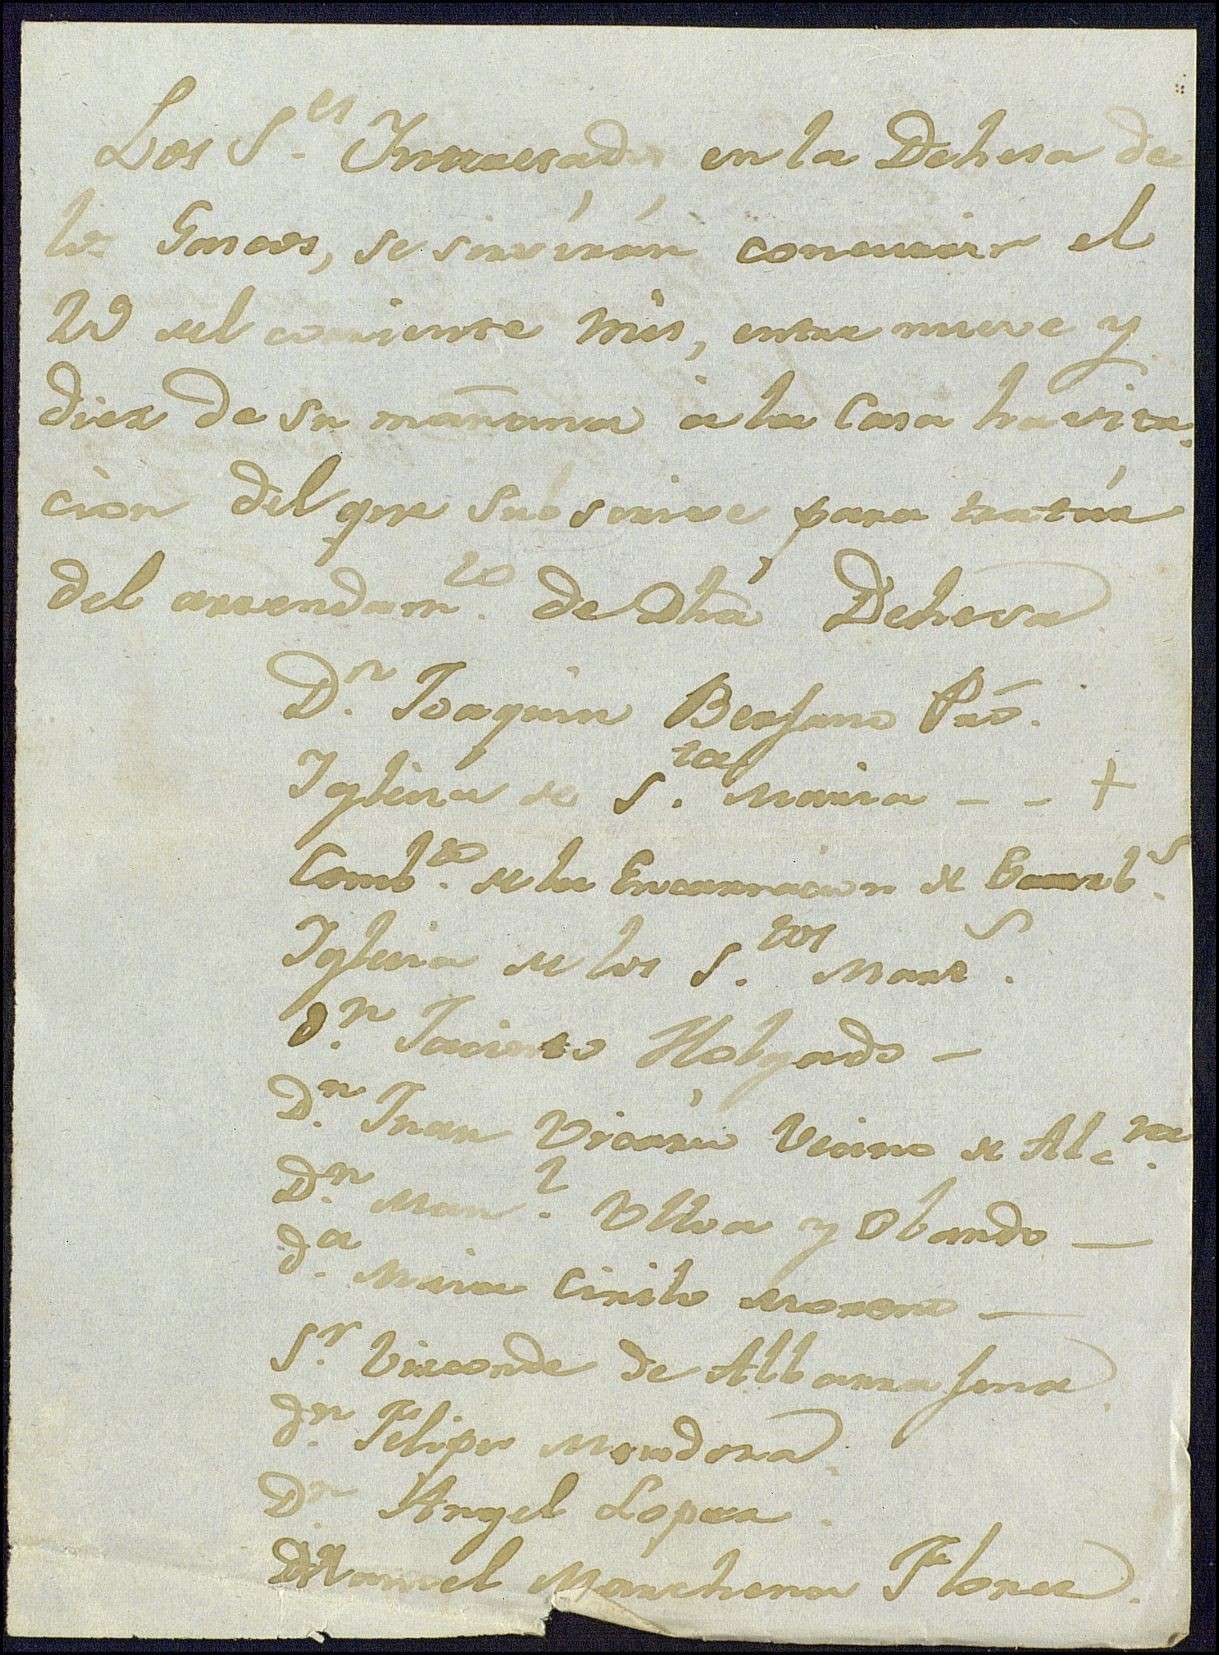 Los S.es Interesados en la Dehesa de
los Garcos, se servirán concurrir el
29 del corriente Mes, entre nueve y
diez de su mañana á la Casa havita-
cion del que subscrive para tratár
del arrendam.to de dha Dehesa
D.n Joaquin Benjano Pró.
Iglesia de S.ta Maria - - +
Comb.to de la Encarnacion de
Iglesia de los S.tos Mart.s
D.n Jacinto Holgado -
D.n Juan Vicario Vecino de Alc.ra
D.n Man.l Ulloa y Obando -
D.a Maria Cirilo Moreno -
S.r Visconde de Albarragena
D.n Felipe Mendoza.
D.n Angel Lopez.
Manuel Marchena Flores.